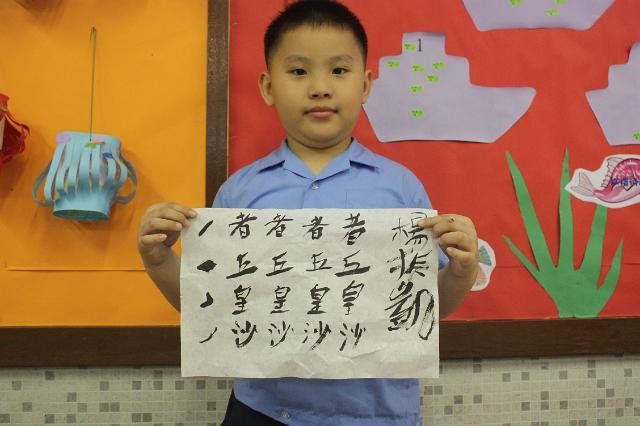 1
者者者者
丘丘丘丘
皇皇皇皇
沙沙沙沙
楊振